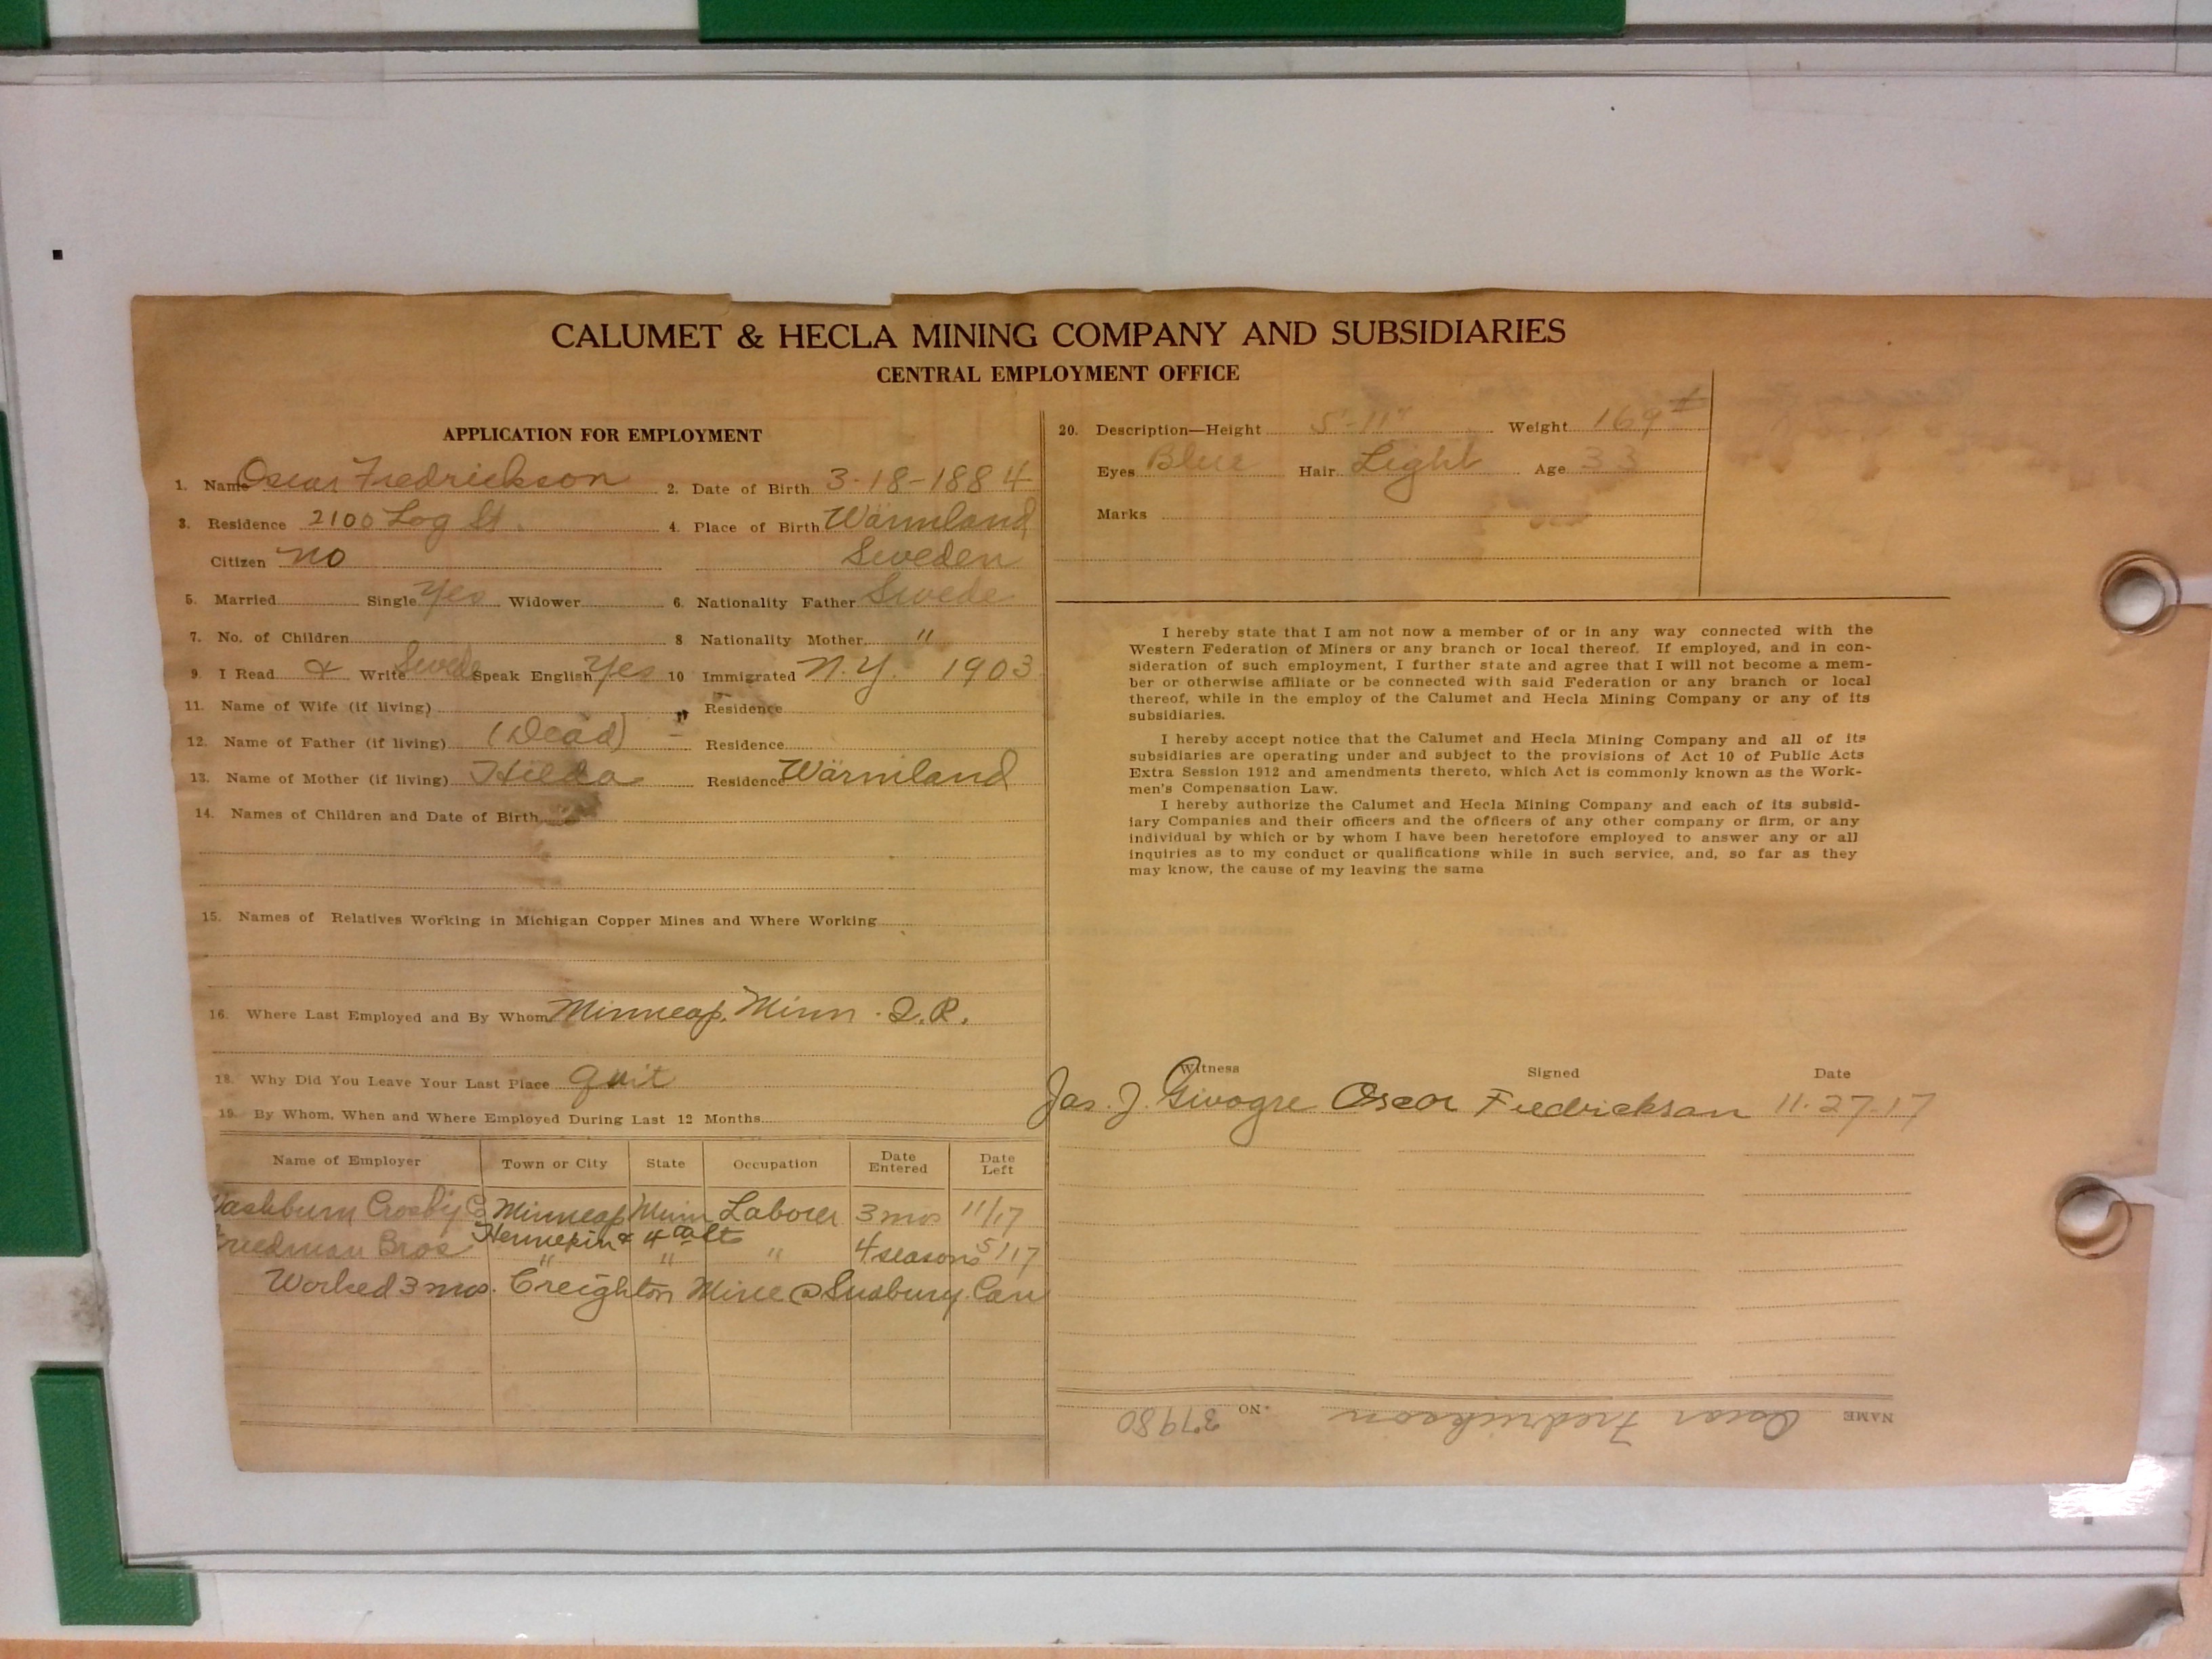 CALUMET & HECLA MINING COMPANY AND SUBSIDIARIES
CENTRAL EMPLOYMENT OFFICE
APPLICATION FOR EMPLOYMENT
1. Name Oscar Fredrickson 2. Date of Birth 3-18-1884
3. Residence 2100 Log St. 4. Place of Birth Wärmland,
Citizen no Sweden
5. Married Single Yes Widower 6. Nationality Father Swede
7. No. of Children 8 Nationality Mother "
9. I Read & Write Swede Speak English Yes 10 Immigrated N.Y. 1903
11. Name of Wife (if living) " Residence
12. Name of Father (if living) (Dead) Residence
13. Name of Mother (if living) Hilda Residence Wärmland
14. Names of Children and Date of Birth
15. Names of Relatives Working in Michigan Copper Mines and Where Working
16. Where Last Employed and By Whom Minneap. Minn.
18. Why Did You Leave Your Last Place quit
19. By Whom, When and Where Employed During Last 12 Months
Name of Employer Town or City State Occupation Date Entered Date Left
Washburn Crosby Co Minneap Minn Laborer 3 mos 11/17
Hennepin & 4th
Friedman Bros " " " 4 seasons 5/17
Worked 3 mos. Creighton Mine @ Sudbury Can
20. Description—Height 5'-11" Weight 169#
Eyes Blue Hair Light Age 33
Marks
I hereby state that I am not now a member of or in any way connected with the
Western Federation of Miners or any branch or local thereof. If employed, and in con-
sideration of such employment, I further state and agree that I will not become a mem-
ber or otherwise affiliate or be connected with said Federation or any branch or local
thereof, while in the employ of the Calumet and Hecla Mining Company or any of its
subsidiaries.
I hereby accept notice that the Calumet and Hecla Mining Company and all of its
subsidiaries are operating under and subject to the provisions of Act 10 of Public Acts
Extra Session 1912 and amendments thereto, which Act is commonly known as the Work-
men's Compensation Law.
I hereby authorize the Calumet and Hecla Mining Company and each of its subsid-
iary Companies and their officers and the officers of any other company or firm, or any
individual by which or by whom I have been heretofore employed to answer any or all
inquiries as to my conduct or qualifications while in such service, and, so far as they
may know, the cause of my leaving the same
Witness Signed Date
Jas. J. Oscar Fredrickson 11-27-17
NAME Oscar Fredrickson NO. 37980